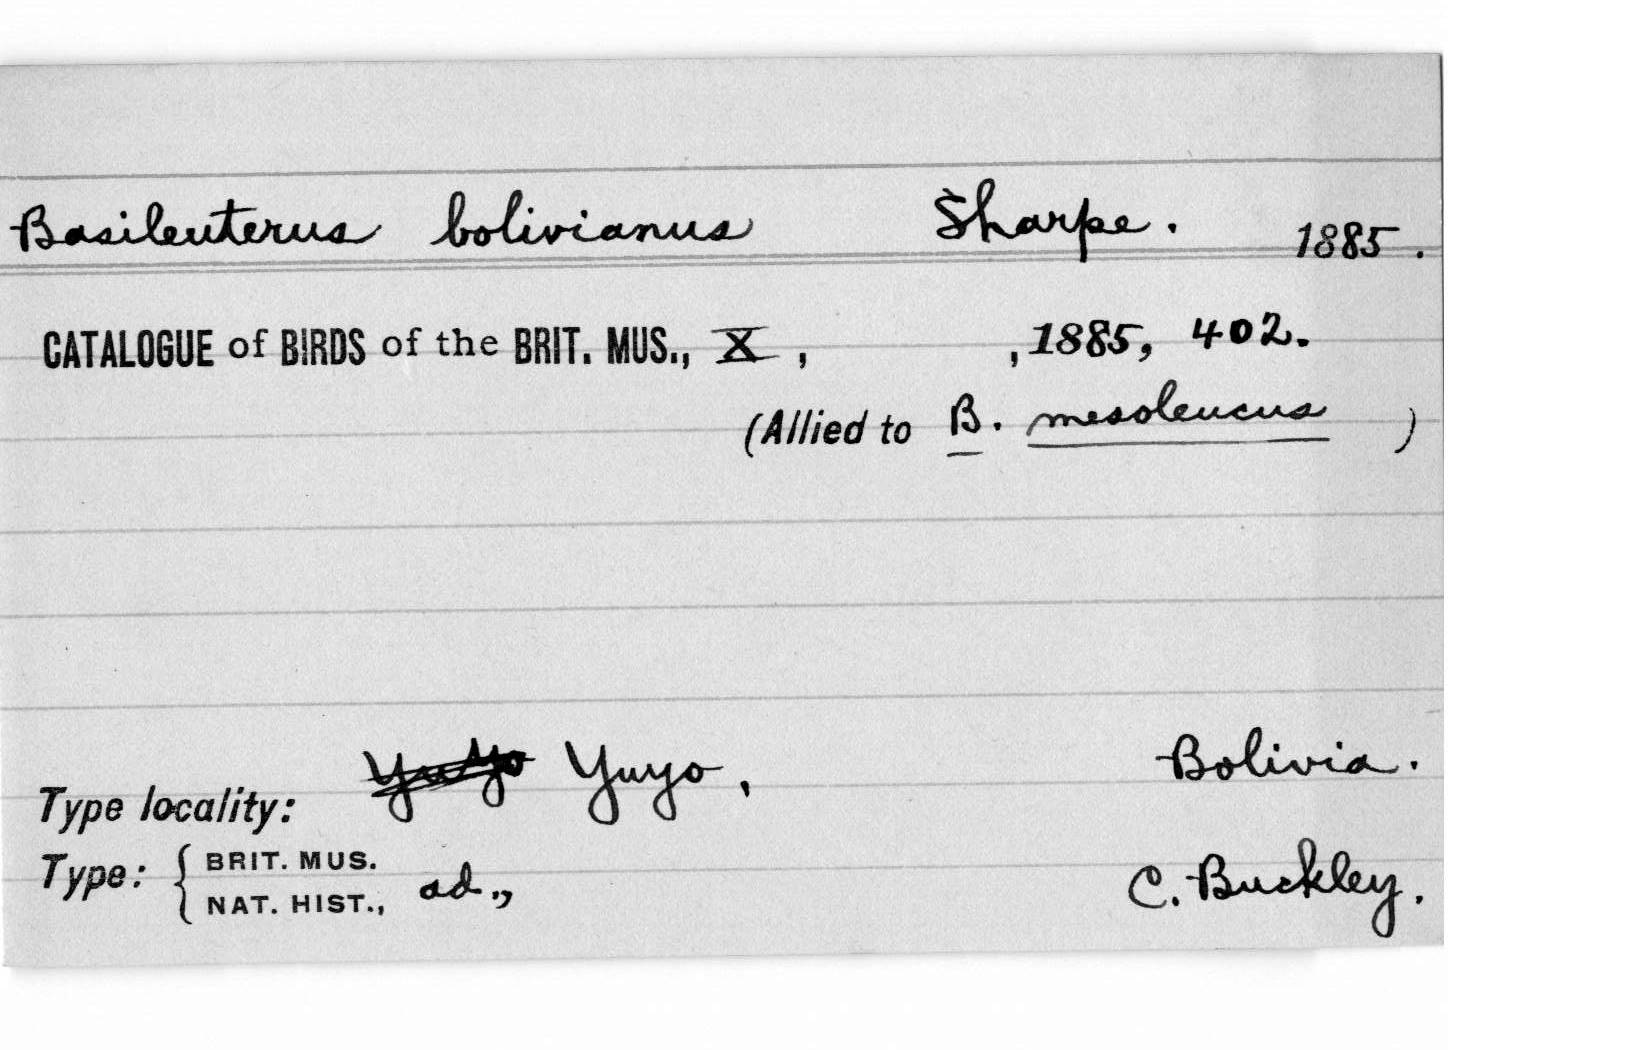 Basileuterus bolivianus Sharpe. 1885.
CATALOGUE of BIRDS of the BRIT. MUS., X, , 1885, 402.
(Allied to B. mesoleucus )
Type locality: Yuyo Yuyo, Bolivia.
Type: { BRIT. MUS.
NAT. HIST., ad., C. Buckley.